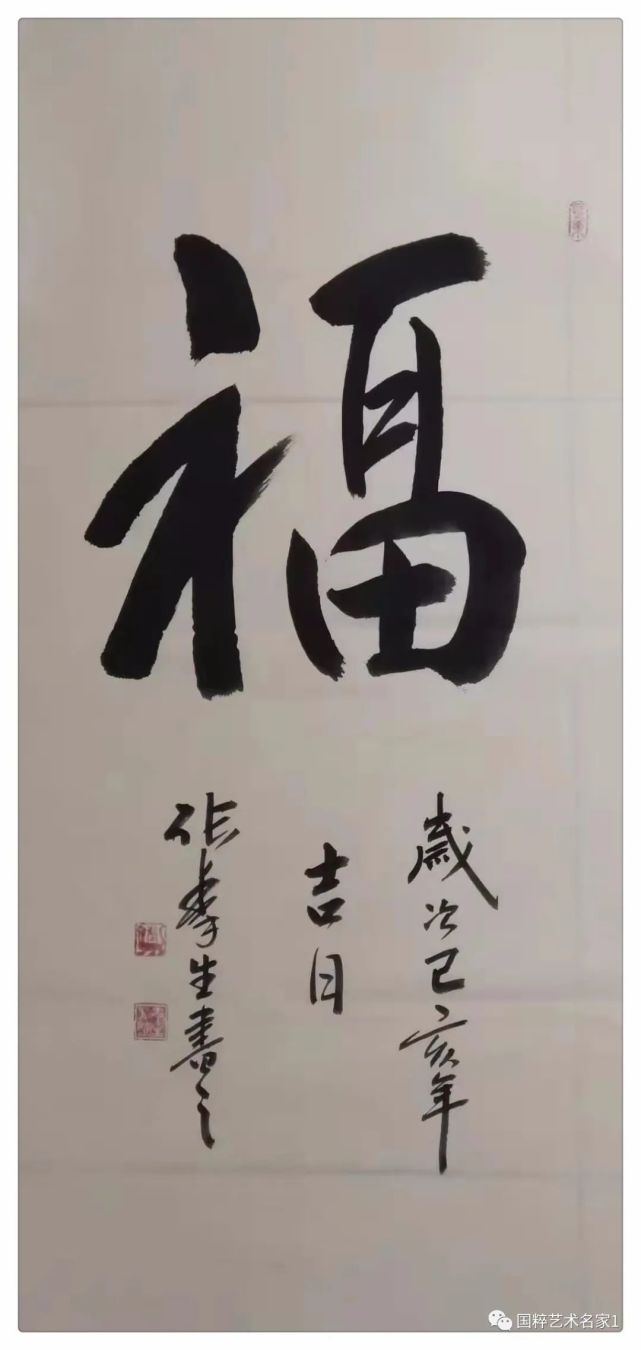 福
歲次己亥年
吉日
張孝生書之
国粹艺术名家1